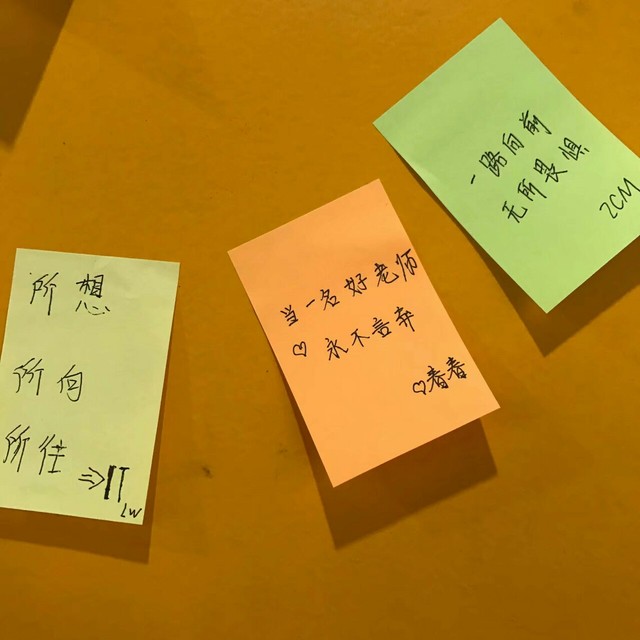 所想
所向
所往
⇒IT
LW
当一名好老师
♡永不言弃
♡春春
一路向前
无所畏惧
ZCM